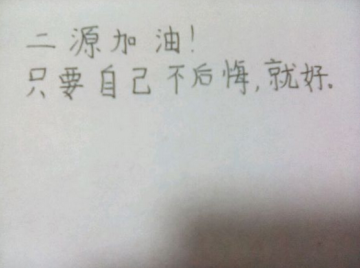 二源加油!
只要自己不后悔,就好.